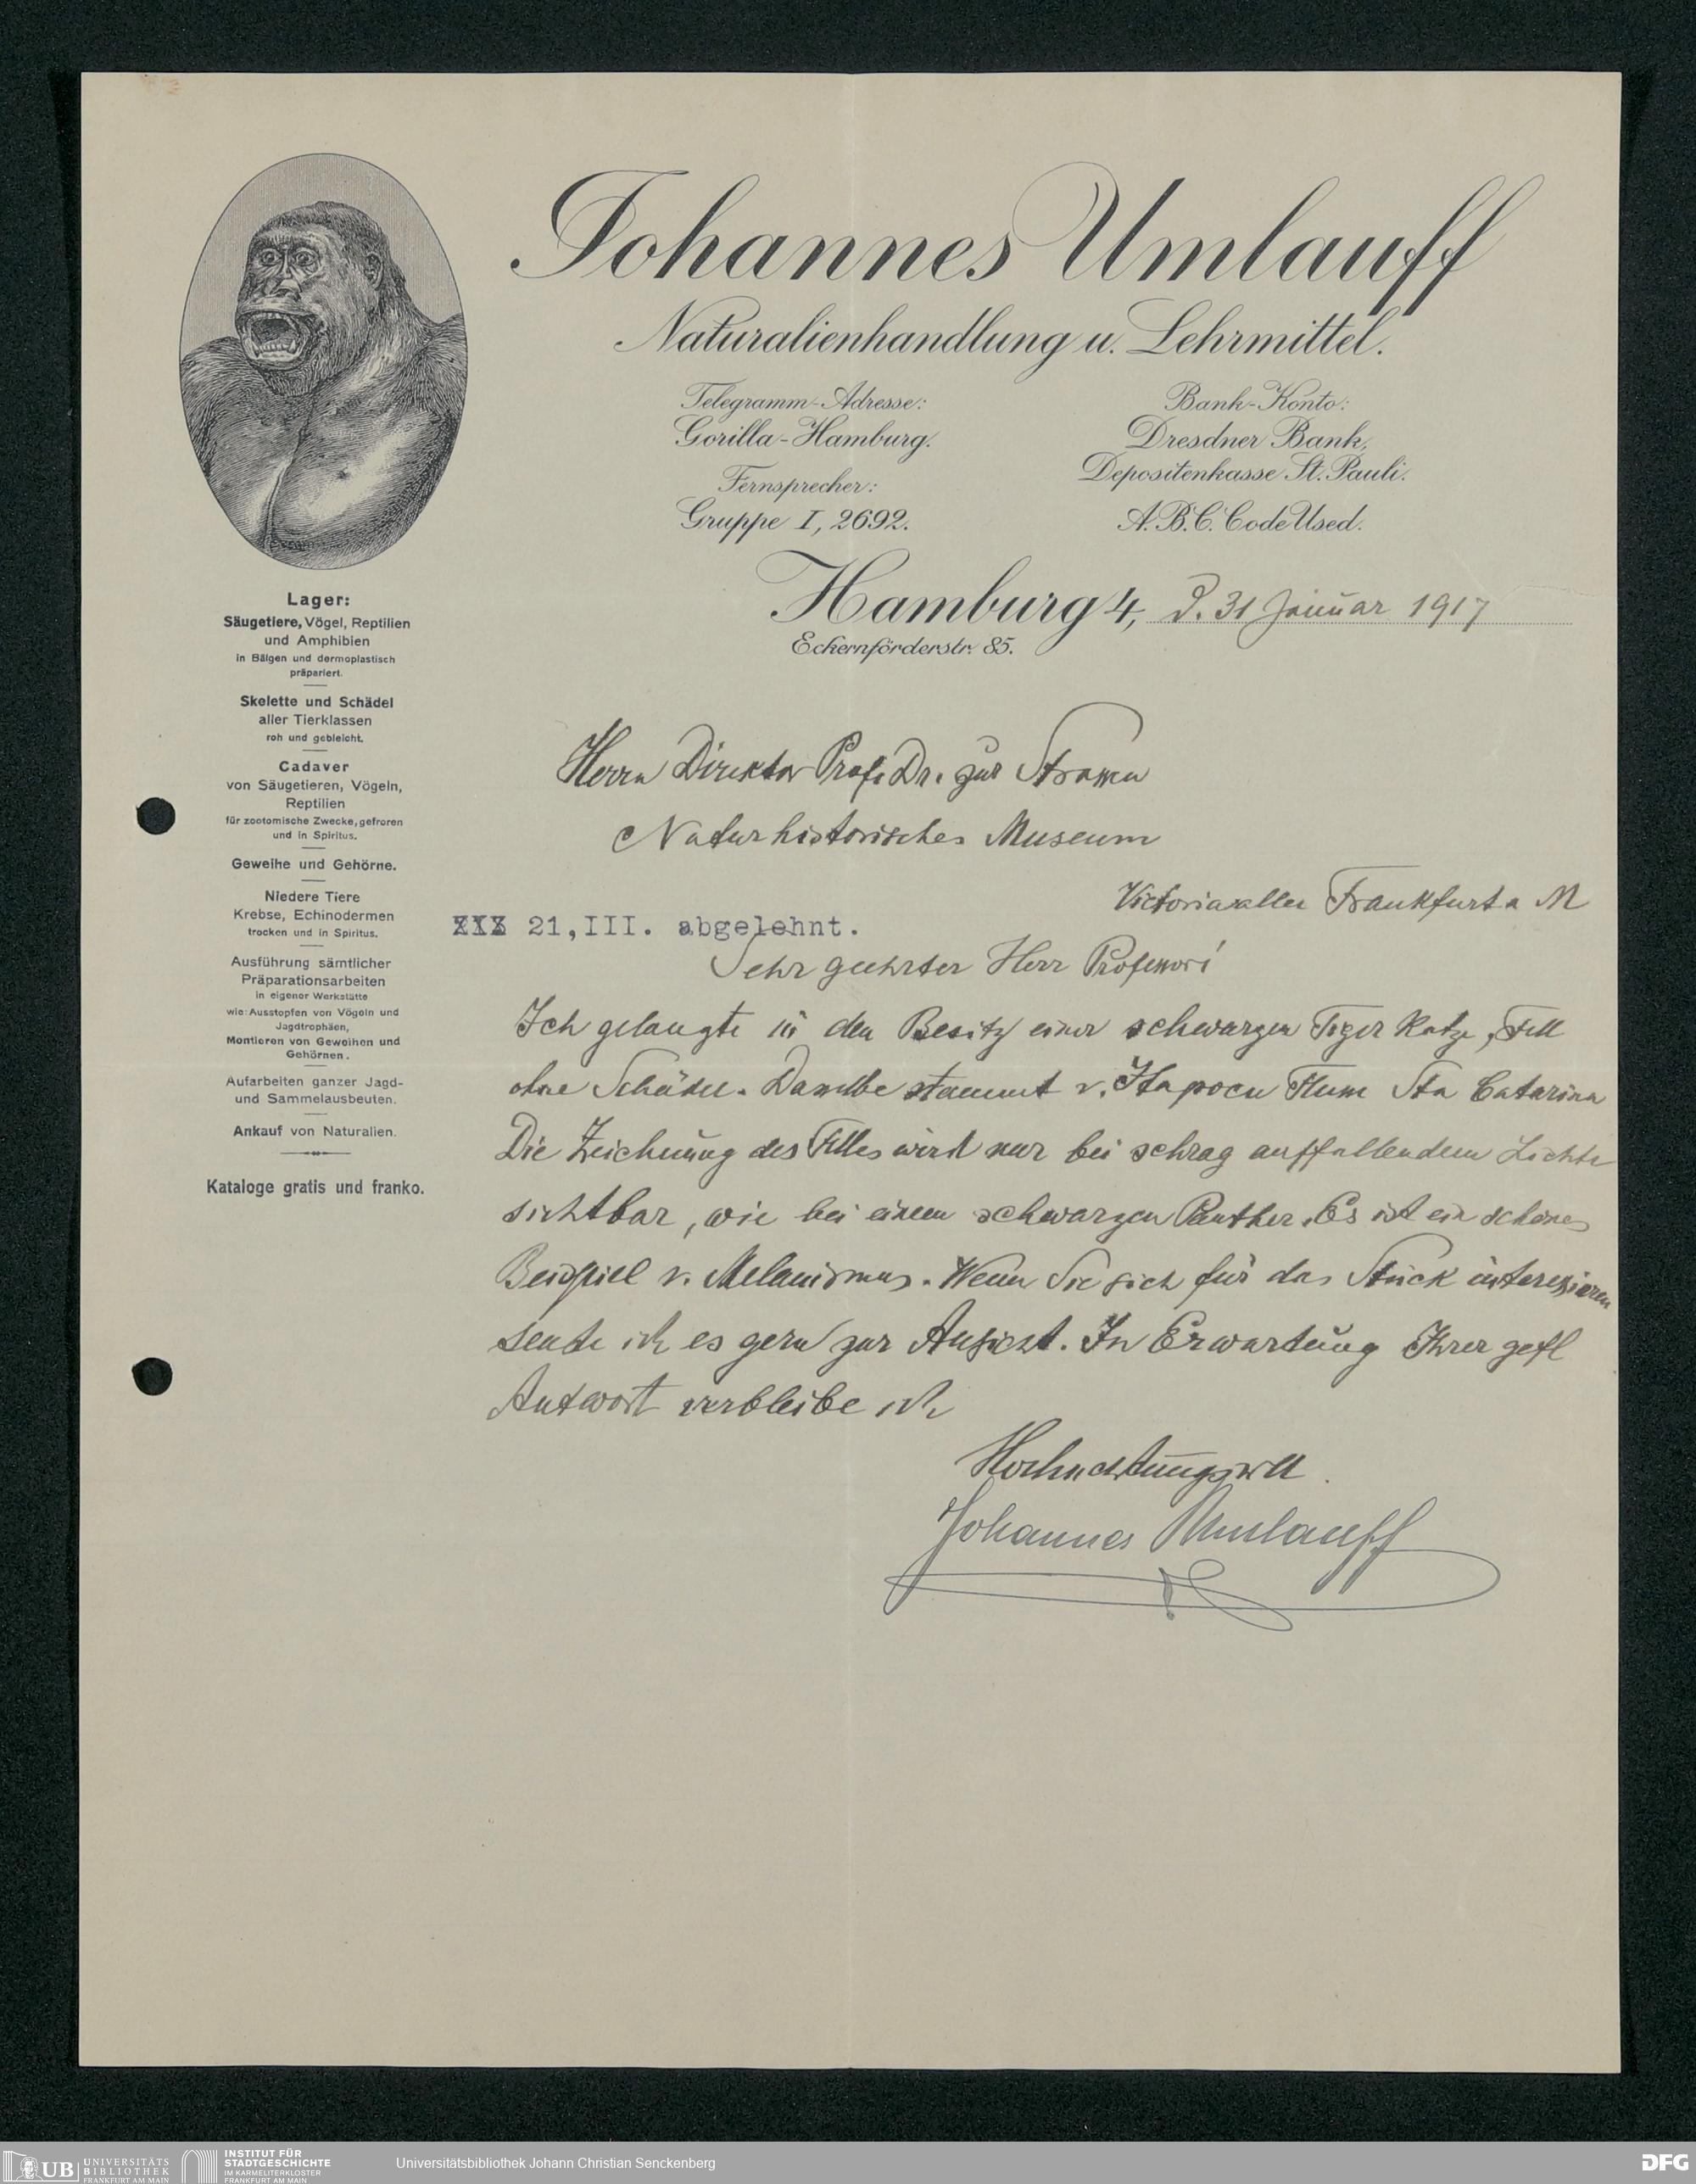 Johannes Umlauff
Naturalienhandlung u. Lehrmittel.
Telegramm-Adresse:
Gorilla-Hamburg.
Fernsprecher:
Gruppe I, 2692.
Bank-Konto:
Dresdner Bank,
Depositenkasse St. Pauli.
A.B.C. Code Used.
Hamburg 4, d. 31 Januar 1917
Eckernförderstr. 85.
Lager:
Säugetiere, Vögel, Reptilien
und Amphibien
in Bälgen und dermoplastisch
präpariert.
Skelette und Schädel
aller Tierklassen
roh und gebleicht.
Cadaver
von Säugetieren, Vögeln,
Reptilien
für zootomische Zwecke, gefroren
und in Spiritus.
Geweihe und Gehörne.
Niedere Tiere
Krebse, Echinodermen
trocken und in Spiritus.
Ausführung sämtlicher
Präparationsarbeiten
in eigener Werkstätte
wie: Ausstopfen von Vögeln und
Jagdtrophäen,
Montieren von Geweihen und
Gehörnen.
Aufarbeiten ganzer Jagd-
und Sammelausbeuten.
Ankauf von Naturalien.
Kataloge gratis und franko.
Herrn Direktor Prof. Dr. zur Strassen
Naturhistorisches Museum
Victoriaallee Frankfurt a M
21,III. abgelehnt.
Sehr geehrter Herr Professor!
Ich gelangte in den Besitz einer schwarzen Tiger Katze, Fell
ohne Schädel. Dasselbe stammt v. Itapocu Flum Sta Catarina
Die Zeichnung des Felles wird nur bei schrag auffallendem Lichte
sichtbar, wie bei einem schwarzen Panther. Es ist ein schönes
Beispiel v. Melanismus. Wenn Sie sich für das Stück interessieren
sende ich es gern zur Ansicht. In Erwartung Ihrer gefl
Antwort verbleibe ich
Hochachtungsvoll
Johannes Umlauff
UB
UNIVERSITÄTS
BIBLIOTHEK
FRANKFURT AM MAIN
INSTITUT FÜR
STADTGESCHICHTE
IM KARMELITERKLOSTER
FRANKFURT AM MAIN
Universitätsbibliothek Johann Christian Senckenberg
DFG